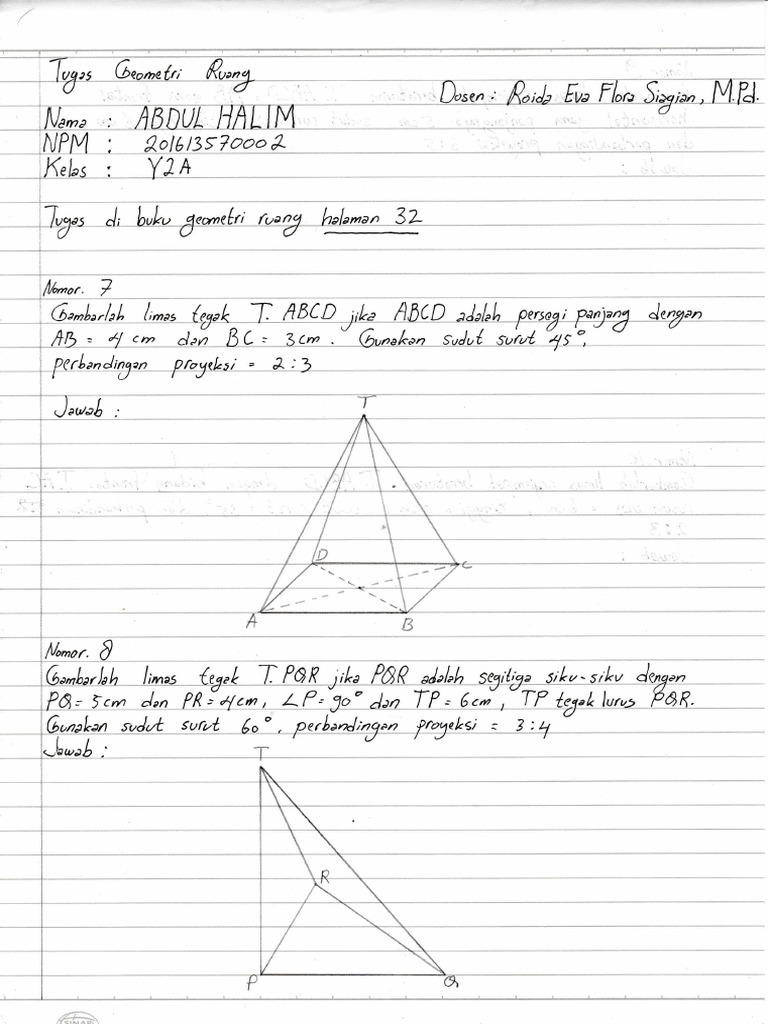 Tugas Geometri Ruang
Dosen : Roida Eva Flora Siagian, M.Pd.
Nama : ABDUL HALIM
NPM : 201613570002
Kelas : Y2A
Tugas di buku geometri ruang halaman 32
Nomor. 7
Gambarlah limas tegak T. ABCD jika ABCD adalah persegi panjang dengan
AB = 4 cm dan BC = 3 cm. Gunakan sudut surut 45°,
perbandingan proyeksi = 2 : 3
Jawab :
T
D
C
A
B
Nomor. 8
Gambarlah limas tegak T. PQR jika PQR adalah segitiga siku-siku dengan
PQ = 5 cm dan PR = 4 cm, ∠P = 90° dan TP = 6 cm, TP tegak lurus PQR.
Gunakan sudut surut 60°, perbandingan proyeksi = 3 : 4
Jawab :
T
R
P
Q